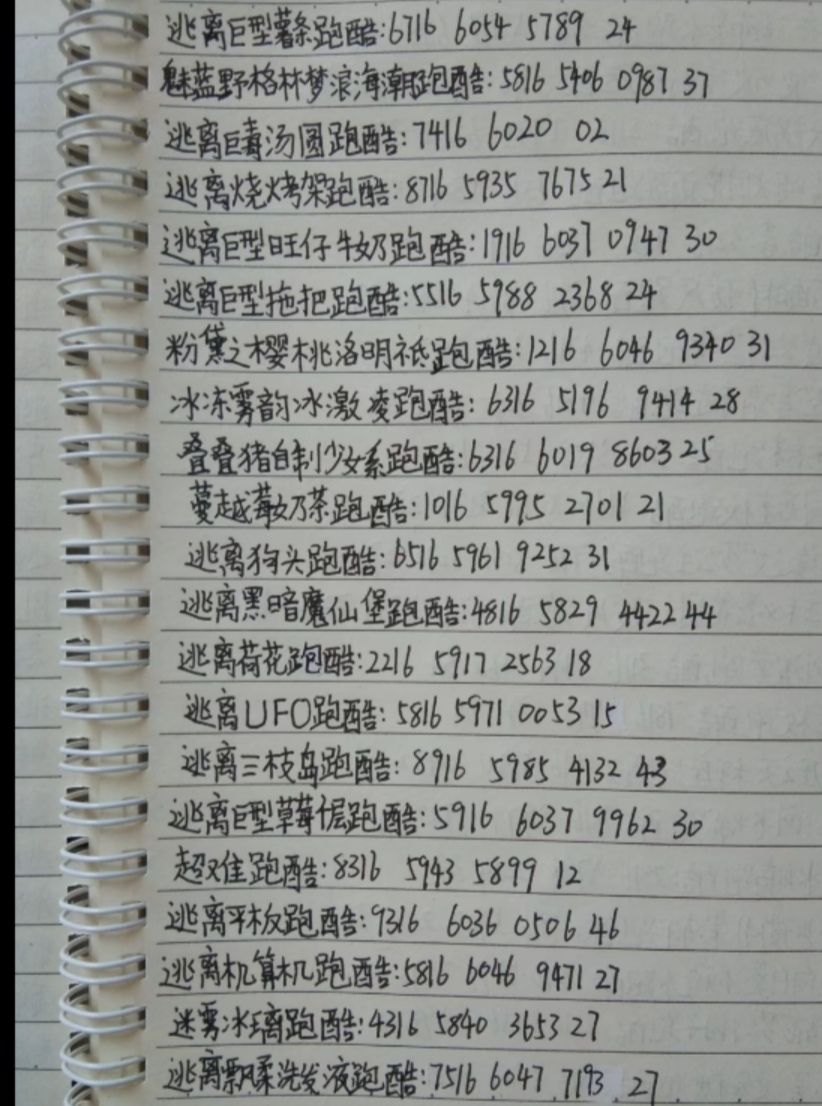 逃离巨型薯条跑酷:6716 6054 5789 24
魅蓝野格林梦浪海潮跑酷:5816 5406 0987 37
逃离巨毒汤圆跑酷:7416 6020 02
逃离烧烤架跑酷:8716 5935 7675 21
逃离巨型旺仔牛奶跑酷:1916 6037 0947 30
逃离巨型拖把跑酷:5516 5988 2368 24
粉黛之樱桃洛明祗跑酷:1216 6046 9340 31
冰冻雾韵冰激凌跑酷:6316 5196 9414 28
叠叠猪自制少女系跑酷:6316 6019 8603 25
蔓越莓奶茶跑酷:1016 5995 2701 21
逃离狗头跑酷:6516 5961 9252 31
逃离黑暗魔仙堡跑酷:4816 5829 4422 44
逃离荷花跑酷:2216 5917 2563 18
逃离UFO跑酷:5816 5971 0053 15
逃离三枝岛跑酷:8916 5985 4132 43
逃离巨型草莓偓跑酷:5916 6037 9962 30
超难跑酷:8316 5943 5899 12
逃离平板跑酷:9316 6036 0506 46
逃离机算机跑酷:5816 6046 9471 27
迷雾冰璃跑酷:4316 5840 3653 27
逃离飘柔洗发液跑酷:7516 6047 7193 27